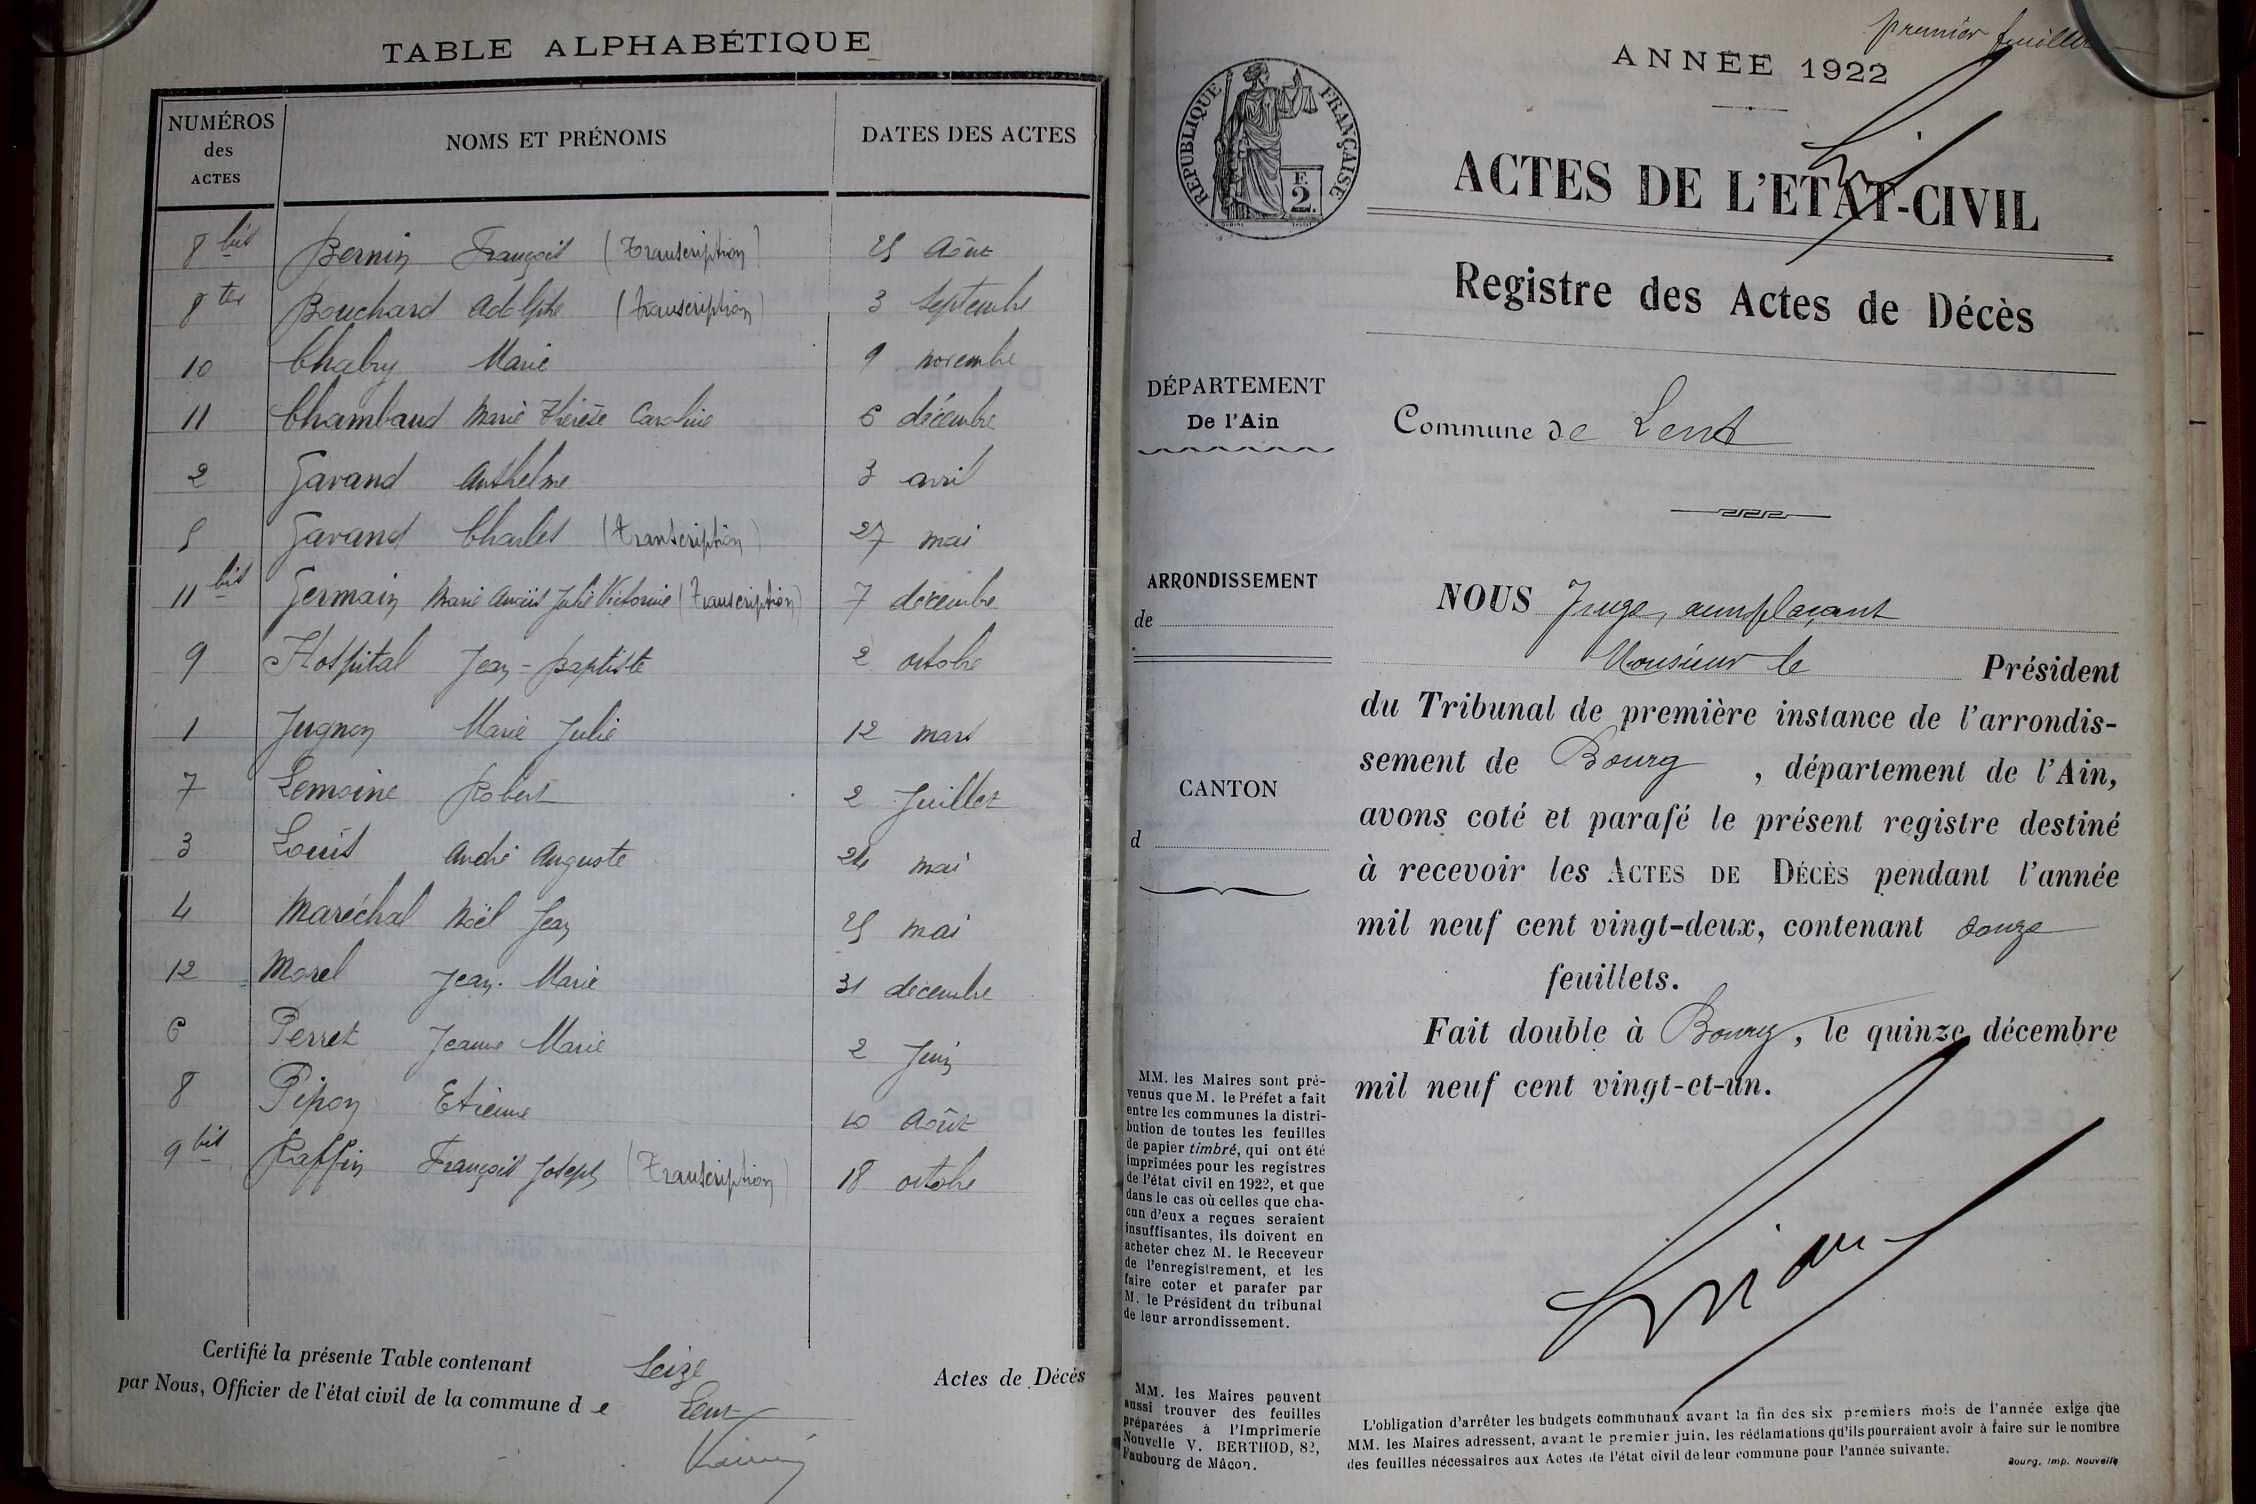 TABLE ALPHABÉTIQUE
NUMÉROS des ACTES NOMS ET PRÉNOMS DATES DES ACTES
8 bis Bernin François (Transcription) 25 Août
8 ter Bouchard Adolphe (transcription) 3 Septembre
10 Chabry Marie 9 novembre
11 Chambaud Marie Thérèse Caroline 6 décembre
2 Gavand Anthelme 3 avril
5 Gavand Charles (transcription) 27 mai
11 bis Germain Marie Anaïs Julie Victorine (Transcription) 7 décembre
9 Hospital Jean-Baptiste 2 octobre
1 Jugnon Marie Julie 12 mars
7 Lemoine Robert 2 Juillet
3 Louis André Auguste 24 mai
4 Maréchal Noël Jean 25 mai
12 Morel Jean-Marie 31 décembre
6 Perret Jeanne Marie 2 Juin
8 Pipon Etienne 10 Août
9 bis Raffin François Joseph (Transcription) 18 octobre
Certifié la présente Table contenant Seize Actes de Décès
par Nous, Officier de l'état civil de la commune de Lent
premier feuillet
ANNÉE 1922
RÉPUBLIQUE FRANÇAISE
F.
2
ACTES DE L'ETAT-CIVIL
Registre des Actes de Décès
DÉPARTEMENT
De l'Ain
Commune de Lent
ARRONDISSEMENT
de
CANTON
d
NOUS Juge, remplaçant
Monsieur le Président
du Tribunal de première instance de l'arrondis-
sement de Bourg, département de l'Ain,
avons coté et parafé le présent registre destiné
à recevoir les ACTES DE DÉCÈS pendant l'année
mil neuf cent vingt-deux, contenant douze
feuillets.
Fait double à Bourg, le quinze décembre
mil neuf cent vingt-et-un.
MM. les Maires sont pré-
venus que M. le Préfet a fait
entre les communes la distri-
bution de toutes les feuilles
de papier timbré, qui ont été
imprimées pour les registres
de l'état civil en 1922, et que
dans le cas où celles que cha-
cun d'eux a reçues seraient
insuffisantes, ils doivent en
acheter chez M. le Receveur
de l'enregistrement, et les
faire coter et parafer par
M. le Président du tribunal
de leur arrondissement.
MM. les Maires peuvent
aussi trouver des feuilles
préparées à l'Imprimerie
Nouvelle V. BERTHOD, 82,
Faubourg de Mâcon.
L'obligation d'arrêter les budgets communaux avant la fin des six premiers mois de l'année exige que
MM. les Maires adressent, avant le premier juin, les réclamations qu'ils pourraient avoir à faire sur le nombre
des feuilles nécessaires aux Actes de l'état civil de leur commune pour l'année suivante.
Bourg, Imp. Nouvelle